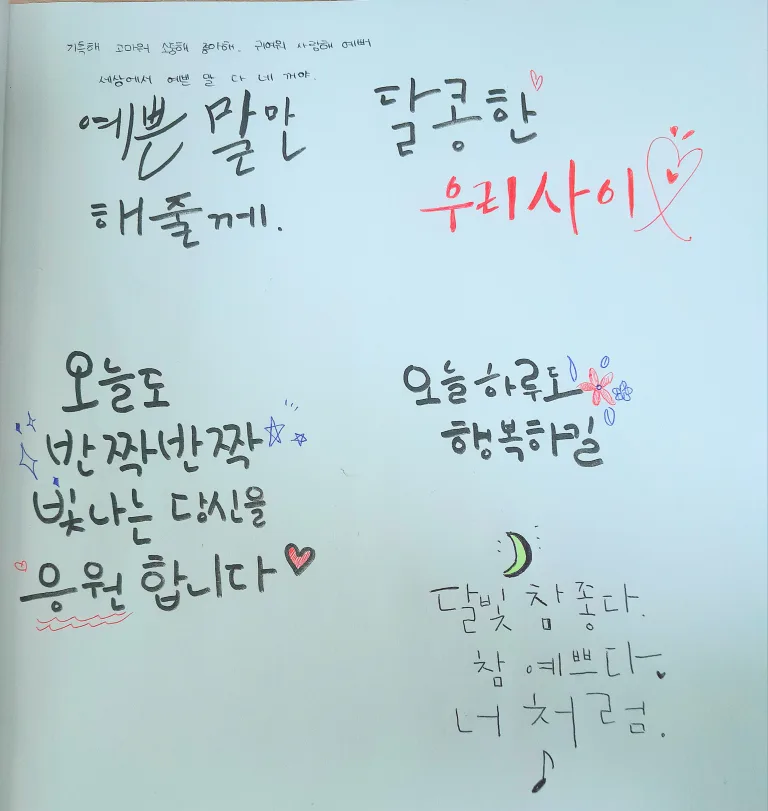 기특해 고마워 소중해 좋아해. 귀여워 사랑해 예뻐
세상에서 예쁜 말 다 네 꺼야.
예쁜 말만
해줄께.
달콩한
우리사이
오늘도
반짝반짝
빛나는 당신을
응원합니다
오늘하루도
행복하길
달빛 참 좋다.
참 예쁘다
너처럼.